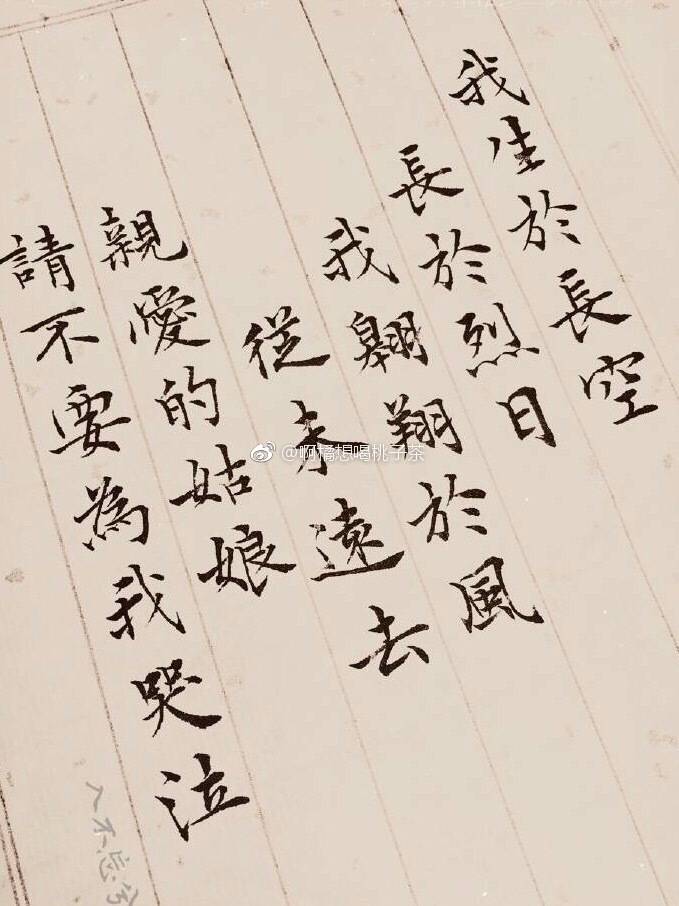 我生於長空
長於烈日
我翱翔於風
從未遠去
親愛的姑娘
請不要為我哭泣
@啊橘想喝桃子茶